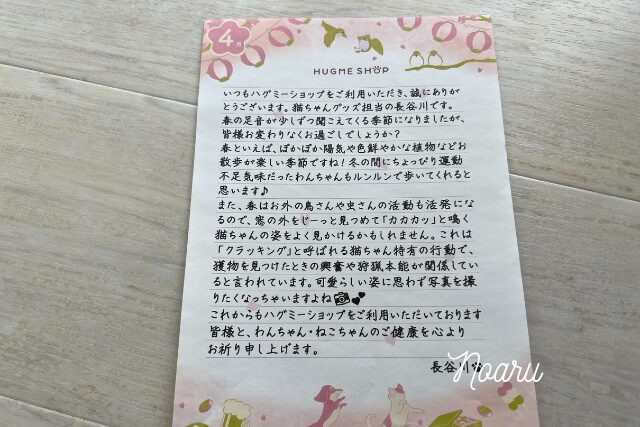 4月
HUGME SHOP
いつもハグミーショップをご利用いただき、誠にありが
とうございます。猫ちゃんグッズ担当の長谷川です。
春の足音が少しずつ聞こえてくる季節になりましたが、
皆様お変わりなくお過ごしでしょうか?
春といえば、ぽかぽか陽気や色鮮やかな植物などお
散歩が楽しい季節ですね!冬の間にちょっぴり運動
不足気味だったわんちゃんもルンルンで歩いてくれると
思います♪
また、春はお外の鳥さんや虫さんの活動も活発にな
るので、窓の外をじーっと見つめて「カカカッ」と鳴く
猫ちゃんの姿をよく見かけるかもしれません。これは
「クラッキング」と呼ばれる猫ちゃん特有の行動で、
獲物を見つけたときの興奮や狩猟本能が関係してい
ると言われています。可愛らしい姿に思わず写真を撮
りたくなっちゃいますよね📷💕
これからもハグミーショップをご利用いただいております
皆様と、わんちゃん・ねこちゃんのご健康を心より
お祈り申し上げます。
長谷川
Noaru